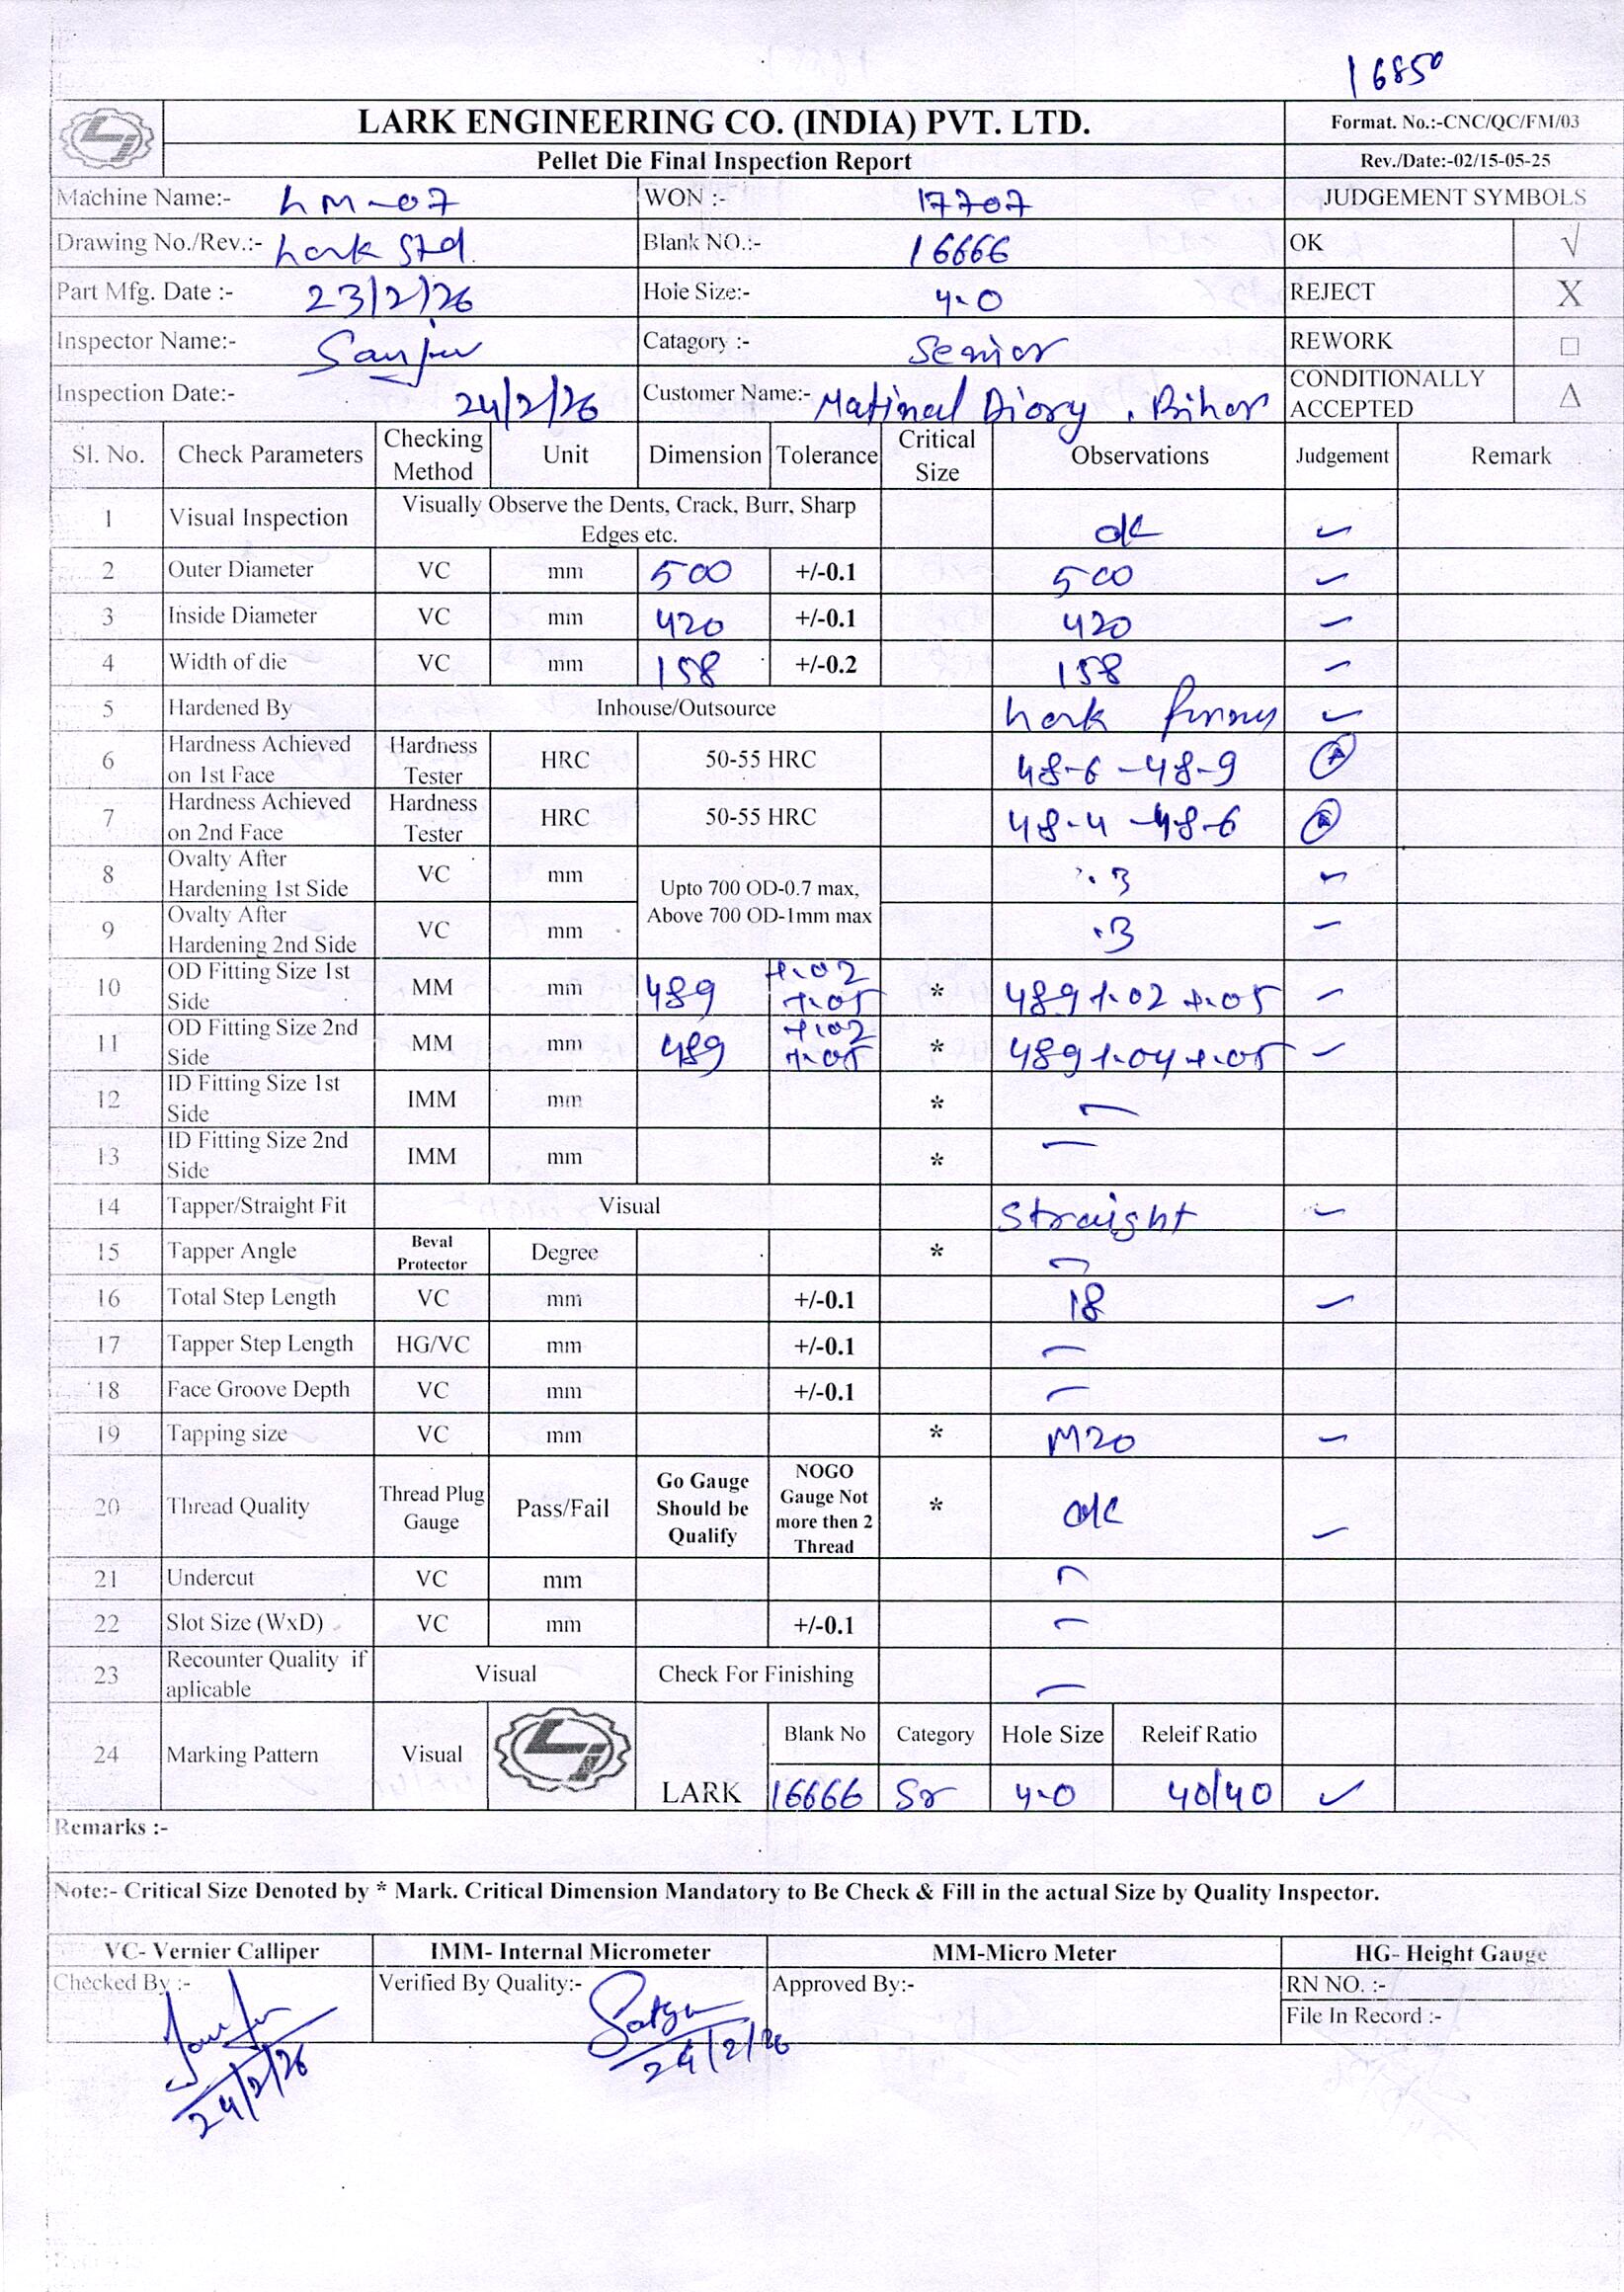 16850
LARK ENGINEERING CO. (INDIA) PVT. LTD.
Format. No.:-CNC/QC/FM/03
Pellet Die Final Inspection Report
Rev./Date:-02/15-05-25
Machine Name:- LM-07 WON :- 17707 JUDGEMENT SYMBOLS
Drawing No./Rev.:- Lark Std. Blank NO.:- 16666 OK √
Part Mfg. Date :- 23/2/26 Hole Size:- 4.0 REJECT X
Inspector Name:- Sanjiv Catagory :- Senior REWORK □
Inspection Date:- 24/2/26 Customer Name:- Matinal Diary, Bihar CONDITIONALLY ACCEPTED Δ
Sl. No. Check Parameters Checking Method Unit Dimension Tolerance Critical Size Observations Judgement Remark
1 Visual Inspection Visually Observe the Dents, Crack, Burr, Sharp Edges etc. ok ✓
2 Outer Diameter VC mm 500 +/-0.1 500 ✓
3 Inside Diameter VC mm 420 +/-0.1 420 ✓
4 Width of die VC mm 158 +/-0.2 158 ✓
5 Hardened By Inhouse/Outsource Lark ✓
6 Hardness Achieved on 1st Face Hardness Tester HRC 50-55 HRC 48.6 - 48.9
7 Hardness Achieved on 2nd Face Hardness Tester HRC 50-55 HRC 48.4 - 48.6
8 Ovalty After Hardening 1st Side VC mm Upto 700 OD-0.7 max, Above 700 OD-1mm max .3 ✓
9 Ovalty After Hardening 2nd Side VC mm .3 ✓
10 OD Fitting Size 1st Side MM mm 489 +.02 +.05 * 489 +.02 +.05 ✓
11 OD Fitting Size 2nd Side MM mm 489 +.02 +.05 * 489 +.04 +.05 ✓
12 ID Fitting Size 1st Side IMM mm * —
13 ID Fitting Size 2nd Side IMM mm * —
14 Tapper/Straight Fit Visual Straight ✓
15 Tapper Angle Beval Protector Degree * —
16 Total Step Length VC mm +/-0.1 18 ✓
17 Tapper Step Length HG/VC mm +/-0.1 —
18 Face Groove Depth VC mm +/-0.1 —
19 Tapping size VC mm * M20 ✓
20 Thread Quality Thread Plug Gauge Pass/Fail Go Gauge Should be Qualify NOGO Gauge Not more then 2 Thread * ok ✓
21 Undercut VC mm —
22 Slot Size (WxD) VC mm +/-0.1 —
23 Recounter Quality if aplicable Visual Check For Finishing —
24 Marking Pattern Visual LARK Blank No Category Hole Size Releif Ratio
16666 Sr 4.0 40/40 ✓
Remarks :-
Note:- Critical Size Denoted by * Mark. Critical Dimension Mandatory to Be Check & Fill in the actual Size by Quality Inspector.
VC- Vernier Calliper IMM- Internal Micrometer MM-Micro Meter HG- Height Gauge
Checked By :- Verified By Quality:- Approved By:- RN NO. :-
File In Record :-
24/2/26 24/2/26